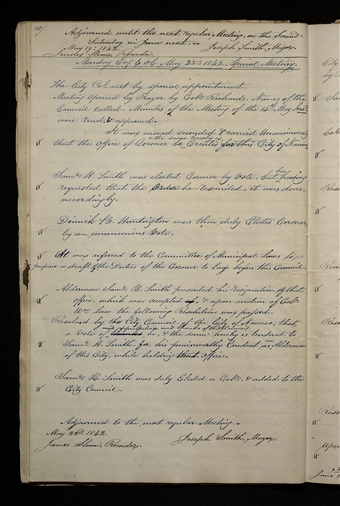 Adjourned until the next regular Meeting, on the second
Saturday in June next.
May 19th 1842. Joseph Smith, Mayor.
James Sloan, Recorder
Monday Eve 6 o'C. May 23rd 1842. Special Meeting.
The City Col. met by special appointment.
Meeting opened by Prayer by Cor. Richards. Names of the
Council called. Minutes of the Meeting of the 14th May
were read, & approved.
It was moved seconded & carried
that the Office of Coroner be Created for this City of Nauvoo
Saml. H. Smith was elected Coroner by Vote, but having
requested that the be rescinded, it was done
accordingly.
Dimick B. Huntington was then duly Elected Coroner
by an unanimous Vote.
It was referred to the Committee of Municipal Laws to
prepare a draft of the Duties of the Coroner to lay before this Council
Alderman Saml. H. Smith presented his resignation of that
office, which was accepted of, & upon motion of Cor.
Wm. Law the following Resolution was passed.
Resolved by the City Council of the City of Nauvoo, that
a Vote of be, & the same hereby is tendered to
Saml. H. Smith for his praiseworthy Conduct as Alderman
of this City, while holding that Office.
Saml. H. Smith was duly Elected a Cor. & added to the
City Council.
Adjourned to the next regular Meeting.
May 23rd 1842.
James Sloan, Recorder. Joseph Smith Mayor